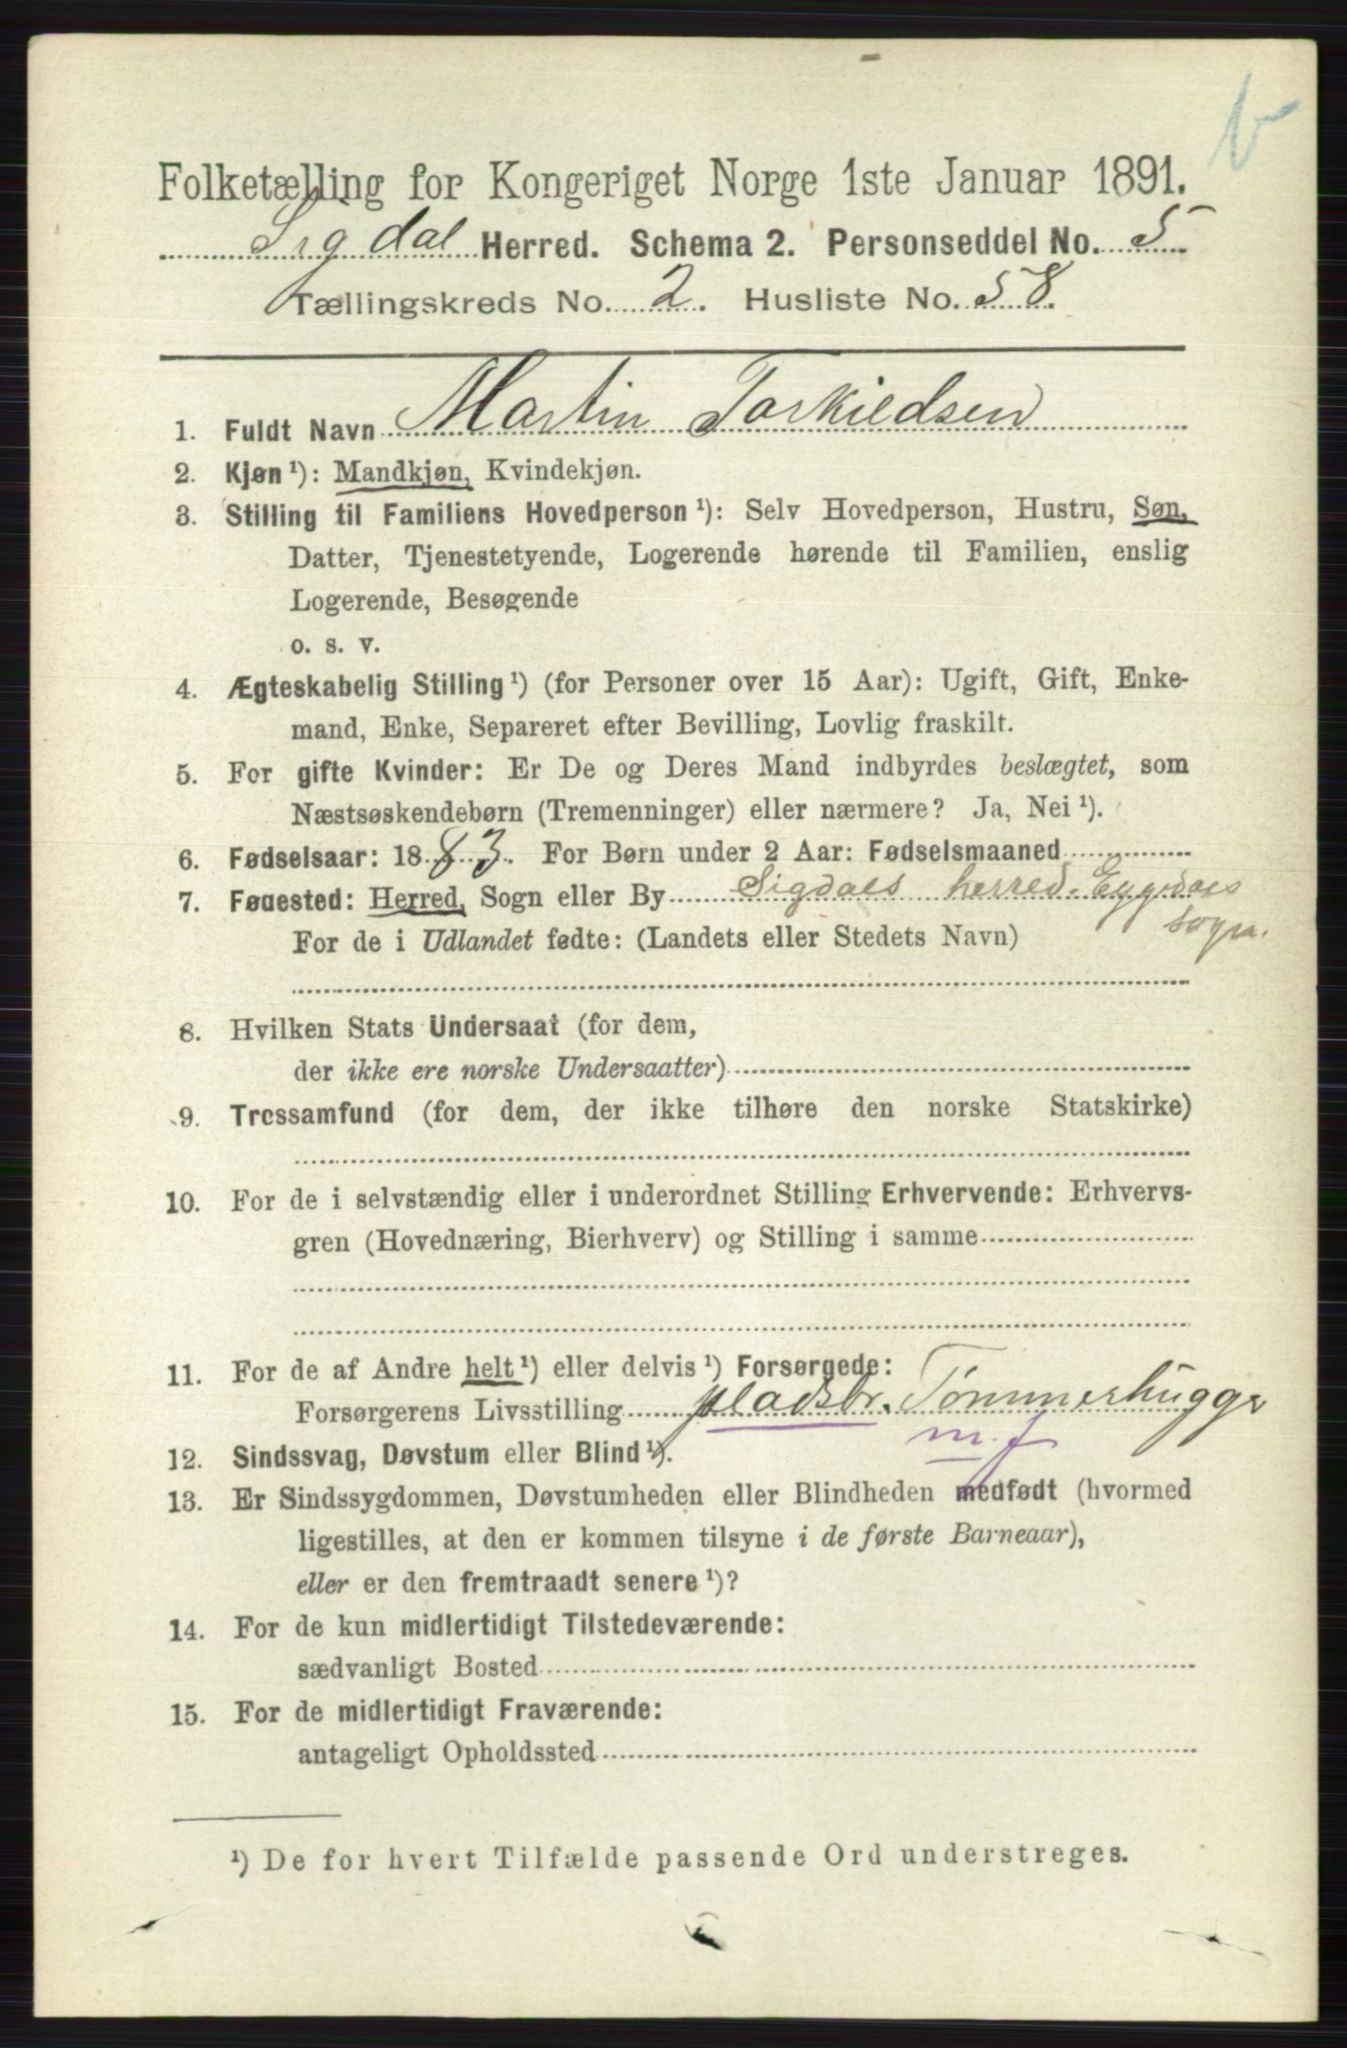 Folketælling for Kongeriget Norge 1ste Januar 1891.
Sigdal Herred. Schema 2. Personseddel No. 5.
Tællingskreds No. 2. Husliste No. 58.
1. Fuldt Navn Martin Torkildsen
2. Kjøn ¹): Mandkjøn, Kvindekjøn.
3. Stilling til Familiens Hovedperson ¹): Selv Hovedperson, Hustru, Søn,
Datter, Tjenestetyende, Logerende hørende til Familien, enslig
Logerende, Besøgende
o. s. v.
4. Ægteskabelig Stilling ¹) (for Personer over 15 Aar): Ugift, Gift, Enke-
mand, Enke, Separeret efter Bevilling, Lovlig fraskilt.
5. For gifte Kvinder: Er De og Deres Mand indbyrdes beslægtet, som
Næstsøskendebørn (Tremenninger) eller nærmere? Ja, Nei ¹).
6. Fødselsaar: 1883. For Børn under 2 Aar: Fødselsmaaned
7. Fødested: Herred, Sogn eller By Sigdals herred. Eggedals
sogn.
For de i Udlandet fødte: (Landets eller Stedets Navn)
8. Hvilken Stats Undersaat (for dem,
der ikke ere norske Undersaatter)
9. Trossamfund (for dem, der ikke tilhøre den norske Statskirke)
10. For de i selvstændig eller i underordnet Stilling Erhvervende: Erhvervs-
gren (Hovednæring, Bierhverv) og Stilling i samme
11. For de af Andre helt ¹) eller delvis ¹) Forsørgede:
Forsørgerens Livsstilling pladsbr. Tömmerhugger
m.f
12. Sindssvag, Døvstum eller Blind ¹).
13. Er Sindssygdommen, Døvstumheden eller Blindheden medfødt (hvormed
ligestilles, at den er kommen tilsyne i de første Barneaar),
eller er den fremtraadt senere ¹)?
14. For de kun midlertidigt Tilstedeværende:
sædvanligt Bosted
15. For de midlertidigt Fraværende:
antageligt Opholdssted
¹) De for hvert Tilfælde passende Ord understreges.